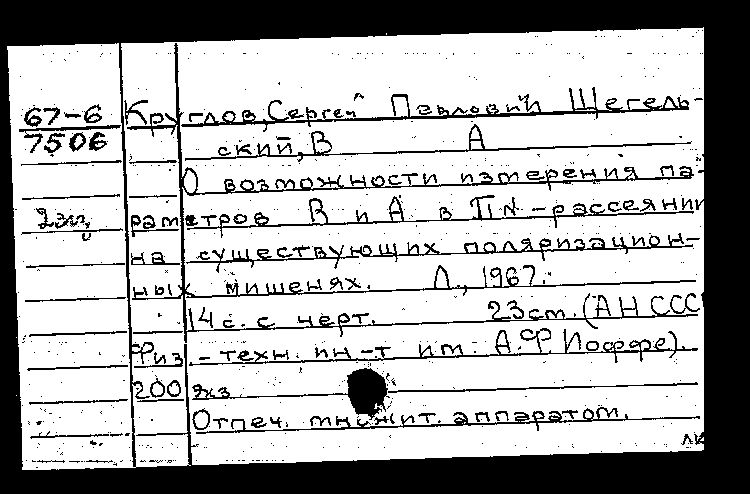 67-6 Круглов, Сергей Павлович Щегель-
7506 ский, В А
О возможности измерения па-
2экз раметров В и А в ПN-рассеянии
на существующих поляризацион-
ных мишенях. Л., 1967.
14 с. с черт. 23 см. (АН СССР
Физ.-техн. ин-т им. А.Ф. Иоффе).
200 экз
Отпеч. множит. аппаратом.